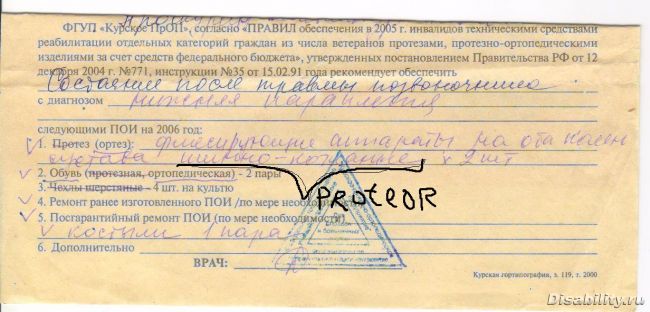 ФГУП «Курское ПрОП», согласно «ПРАВИЛ обеспечения в 2005 г. инвалидов техническими средствами
реабилитации отдельных категорий граждан из числа ветеранов протезами, протезно-ортопедическими
изделиями за счет средств федерального бюджета», утвержденных постановлением Правительства РФ от 12
декабря 2004 г. №771, инструкции №35 от 15.02.91 года рекомендует обеспечить
Состояние после травмы позвоночника
с диагнозом нижняя параплегия
следующими ПОИ на 2006 год:
1. Протез (ортез): фиксирующие аппараты на оба колен
сустава шинно-кожаные x 2 шт
2. Обувь (протезная, ортопедическая) - 2 пары
3. Чехлы шерстяные - 4 шт. на культю
PROTEOR
4. Ремонт ранее изготовленного ПОИ /по мере необходимости/
5. Посгарантийный ремонт ПОИ (по мере необходимости)
v костыли 1 пара
6. Дополнительно
ВРАЧ:
Курская гортипография, з. 119, г. 2000
Disability.ru